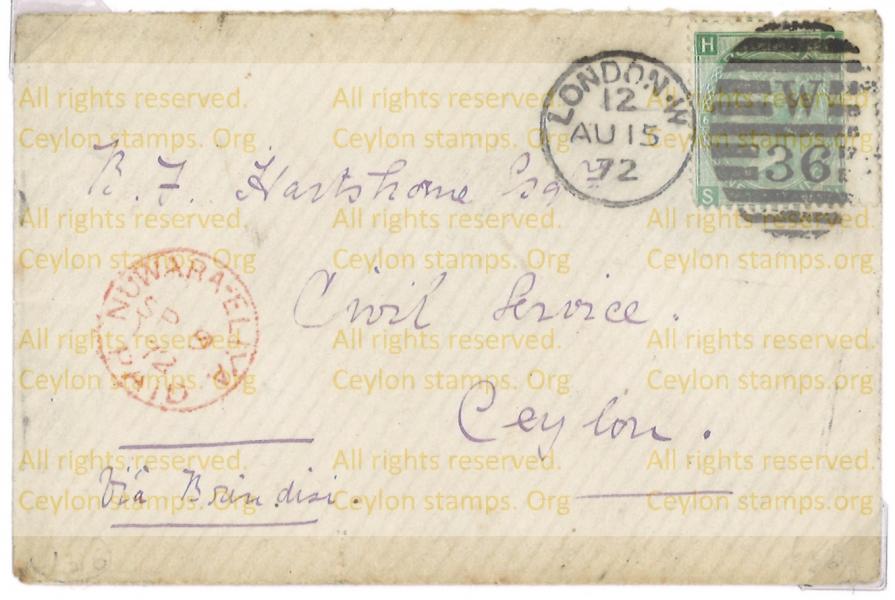 LONDON·W
12
AU 15
72
H
W
36
S
B. F. Hartshorne Esqre
Civil Service.
Ceylon.
NUWARA-ELIYA
SP 9
72
PAID
Viâ Brindisi.
All rights reserved. All rights reserved. All rights reserved.
Ceylon stamps. Org Ceylon stamps. Org Ceylon stamps. Org
All rights reserved. All rights reserved. All rights reserved.
Ceylon stamps. Org Ceylon stamps. Org Ceylon stamps. Org
All rights reserved. All rights reserved. All rights reserved.
Ceylon stamps. Org Ceylon stamps. Org Ceylon stamps. Org
All rights reserved. All rights reserved. All rights reserved.
Ceylon stamps. Org Ceylon stamps. Org Ceylon stamps. Org